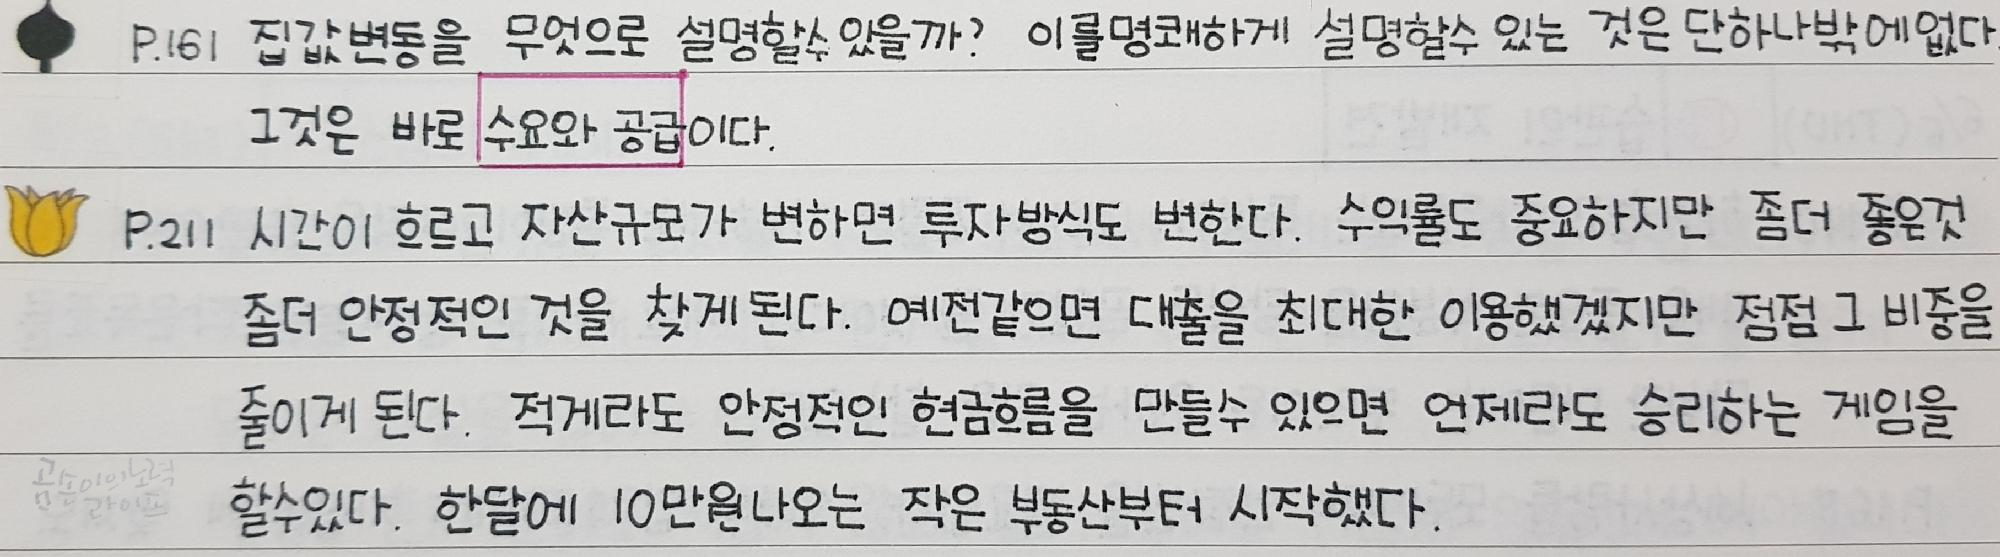 P.161 집값변동을 무엇으로 설명할수 있을까? 이를명쾌하게 설명할수 있는 것은 단하나밖에없다.
그것은 바로 수요와 공급이다.
P.211 시간이 흐르고 자산규모가 변하면 투자방식도 변한다. 수익률도 중요하지만 좀더 좋은것
좀더 안정적인 것을 찾게된다. 예전같으면 대출을 최대한 이용했겠지만 점점 그 비중을
줄이게 된다. 적게라도 안정적인 현금흐름을 만들수 있으면 언제라도 승리하는 게임을
할수있다. 한달에 10만원나오는 작은 부동산부터 시작했다.
곰손이의노력
라이프